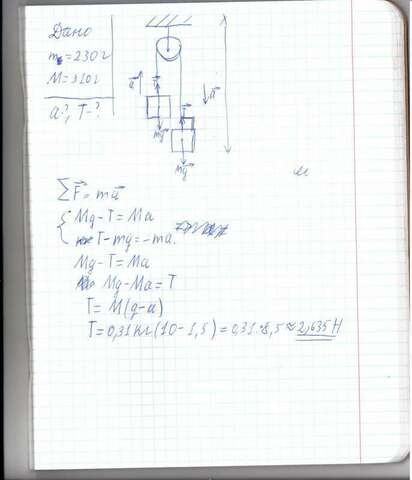 Дано
m=230г
M=310г
a?, T-?
a
T
a
T
mg
mg
м
ΣF = ma
{ Mg-T=Ma
T-mg=-ma.
Mg-T=Ma
Mg-Ma=T
T=M(g-a)
T=0,31кг(10-1,5)=0,31·8,5≈2,635Н